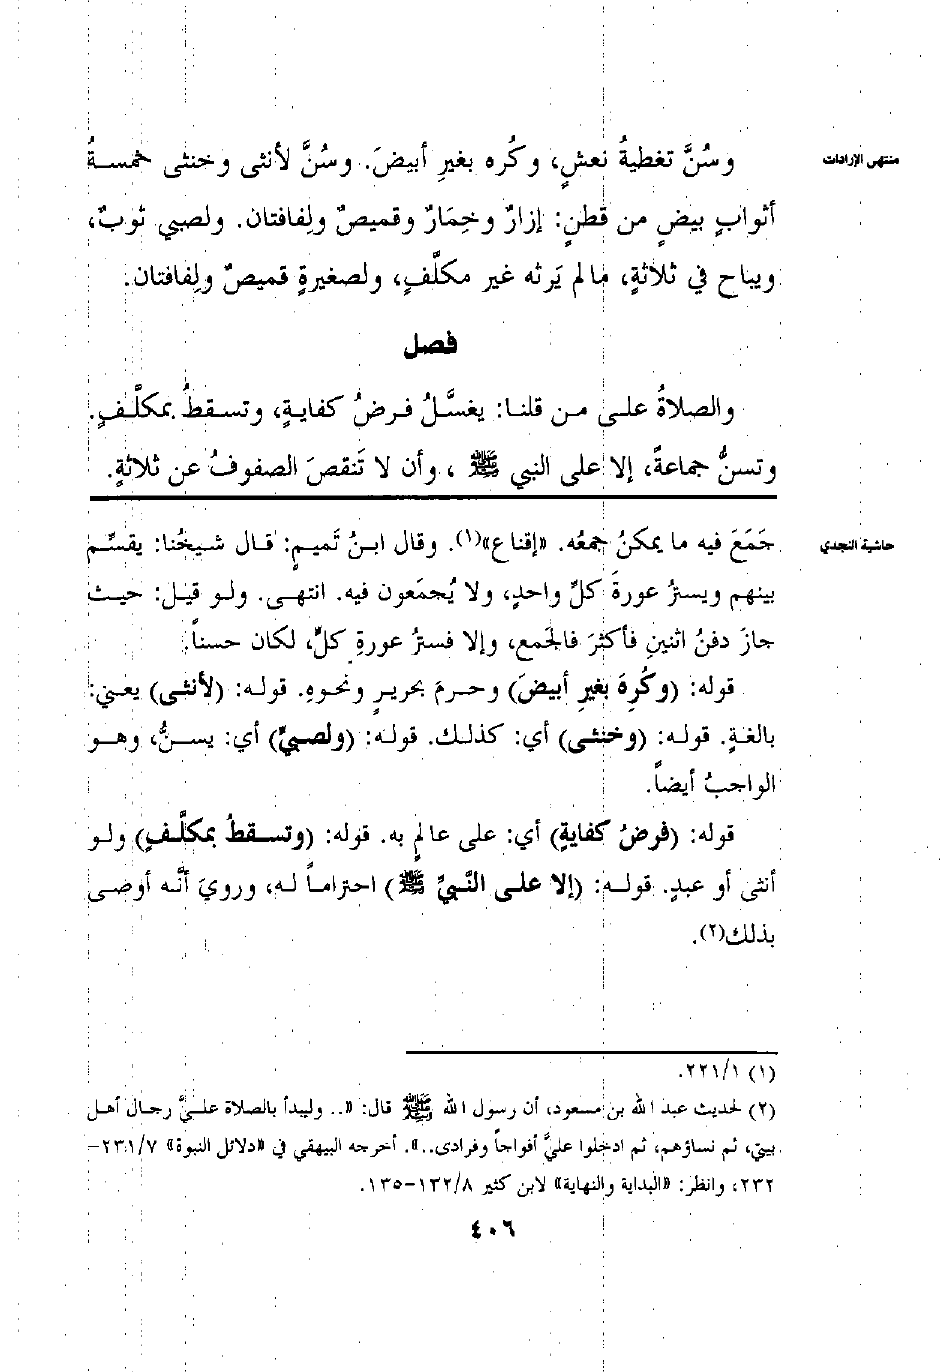 منتهى الإرادات
وسُنَّ تغطيةُ نعشٍ، وكُره بغيرِ أبيضَ. وسُنَّ لأنثى وخنثى خمسةُ
أثوابٍ بيضٍ من قطنٍ: إزارٌ وخِمَارٌ وقميصٌ ولِفافتان. ولصبي ثوبٌ،
ويباح في ثلاثةٍ، مالم يَرثه غير مكلَّفٍ، ولصغيرةٍ قميصٌ ولِفافتان.
فصل
والصلاةُ على من قلنا: يغسَّلُ فرضُ كفايةٍ، وتسقطُ بمكلَّفٍ.
وتسنُّ جماعةً، إلا على النبي ﷺ ، وأن لا تَنقصَ الصفوفُ عن ثلاثةٍ.
حاشية النجدي
جَمَعَ فيه ما يمكنُ جمعُه. «إقناع»(١). وقال ابنُ تَميمٍ: قال شيخُنا: يقسَّم
بينهم ويسترُ عورةَ كلِّ واحدٍ، ولا يُجمَعون فيه. انتهى. ولو قيل: حيث
جازَ دفنُ اثنينِ فأكثرَ فالجَمع، وإلا فسترُ عورةِ كلٍّ، لكان حسناً.
قوله: (وكُرِهَ بغيرِ أبيضَ) وحرمَ بحريرٍ ونحوِهِ. قوله: (لأنثى) يعني:
بالغةٍ. قوله: (وخنثى) أي: كذلك. قوله: (ولصبيٍّ) أي: يسنُّ، وهو
الواجبُ أيضاً.
قوله: (فرضُ كفايةٍ) أي: على عالمٍ به. قوله: (وتسقطُ بمكلَّفٍ) ولو
أنثى أو عبدٍ. قوله: (إلا على النَّبيِّ ﷺ) احتراماً له، ورويَ أنَّه أوصى
بذلك(٢).
(١) ٢٢١/١.
(٢) لحديث عبد الله بن مسعود، أن رسول الله ﷺ قال: «.. وليبدأ بالصلاة عليَّ رجال أهل
بيتي، ثم نساؤهم، ثم ادخلوا عليَّ أفواجاً وفرادى..». أخرجه البيهقي في «دلائل النبوة» ٢٣١/٧-
٢٣٢، وانظر: «البداية والنهاية» لابن كثير ١٣٢/٨-١٣٥.
٤٠٦